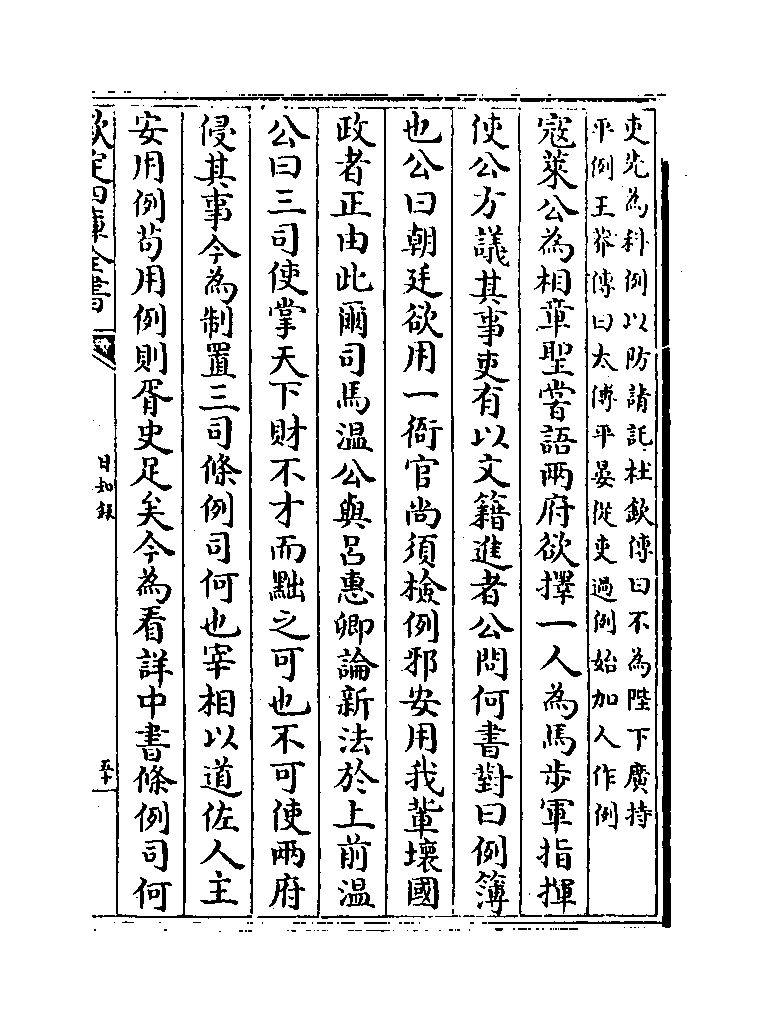 吏先為科例以防請託杜欽傳曰不為陛下廣持
平例王莽傳曰太傅平晏從吏過例始加人作例
寇萊公為相章聖嘗語兩府欲擇一人為馬步軍指揮
使公方議其事吏有以文籍進者公問何書對曰例簿
也公曰朝廷欲用一衙官尚須檢例邪安用我輩壞國
政者正由此爾司馬溫公與呂惠卿論新法於上前溫
公曰三司使掌天下財不才而黜之可也不可使兩府
侵其事今為制置三司條例司何也宰相以道佐人主
安用例苟用例則胥史足矣今為看詳中書條例司何
欽定四庫全書
日知錄